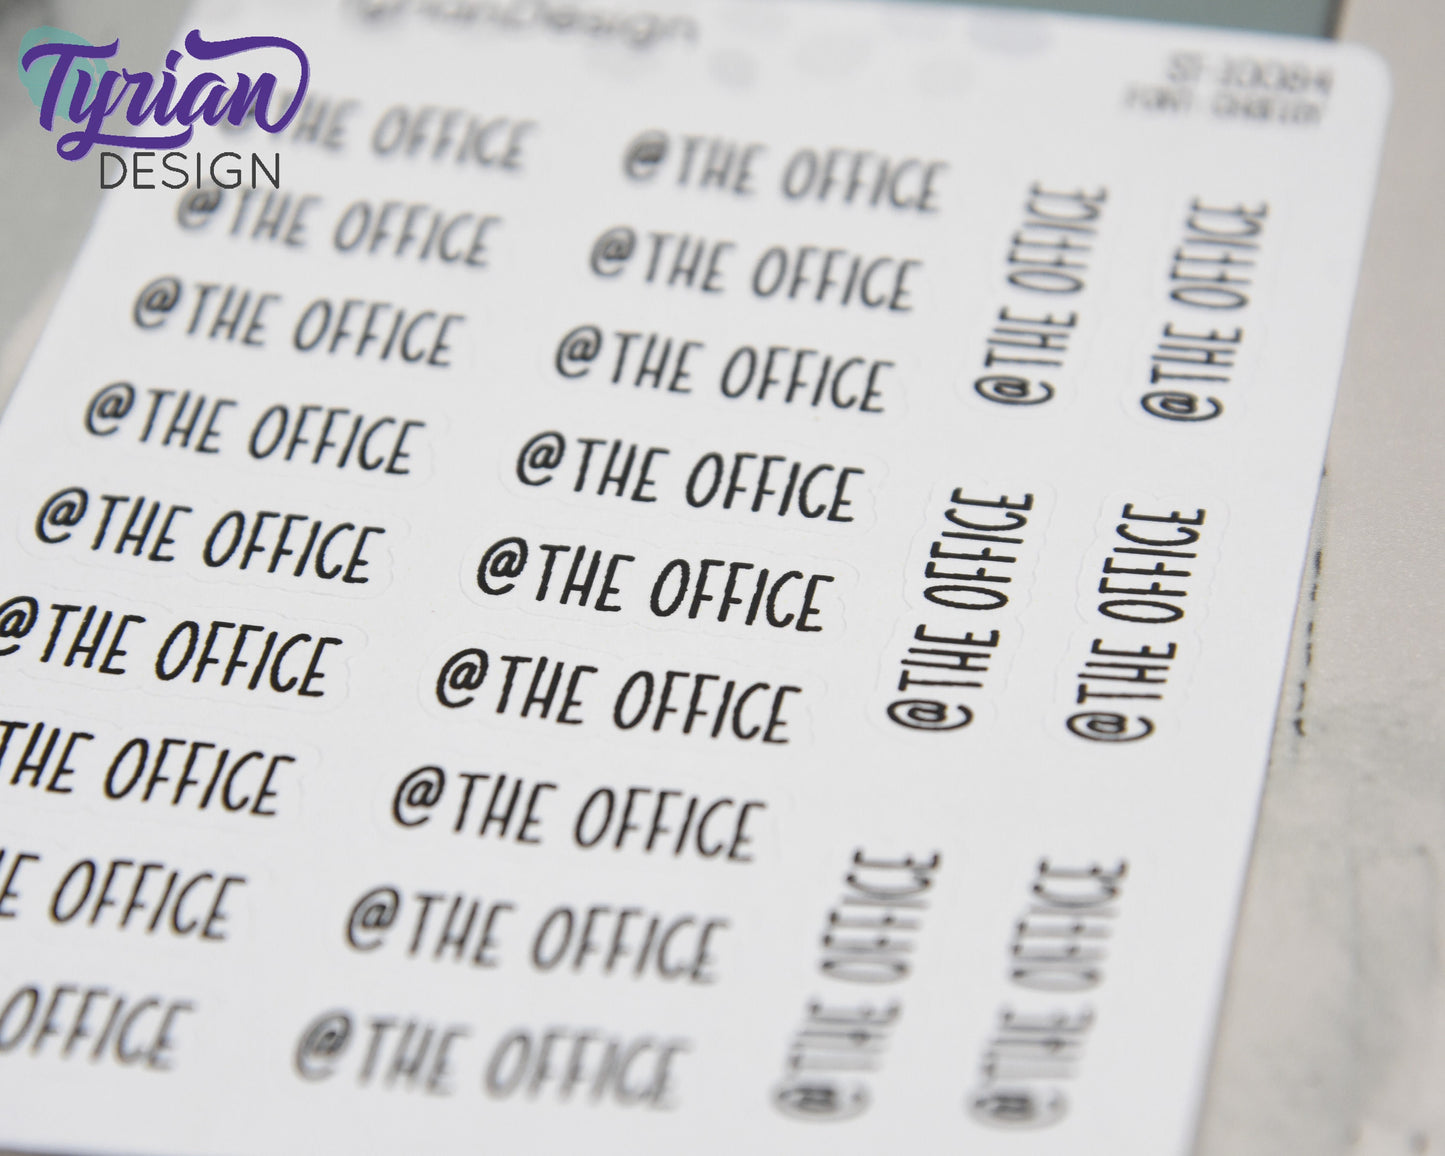 Tyrian
DESIGN
TyrianDesign
ST-10084
FONT:
@THE OFFICE
@THE OFFICE
@THE OFFICE
@THE OFFICE
@THE OFFICE
@THE OFFICE
@THE OFFICE
@THE OFFICE
@THE OFFICE
@THE OFFICE
@THE OFFICE
@THE OFFICE
THE OFFICE
@THE OFFICE
E OFFICE
@THE OFFICE
OFFICE
@THE OFFICE
@THE OFFICE
@THE OFFICE
@THE OFFICE
@THE OFFICE
@THE OFFICE
@THE OFFICE